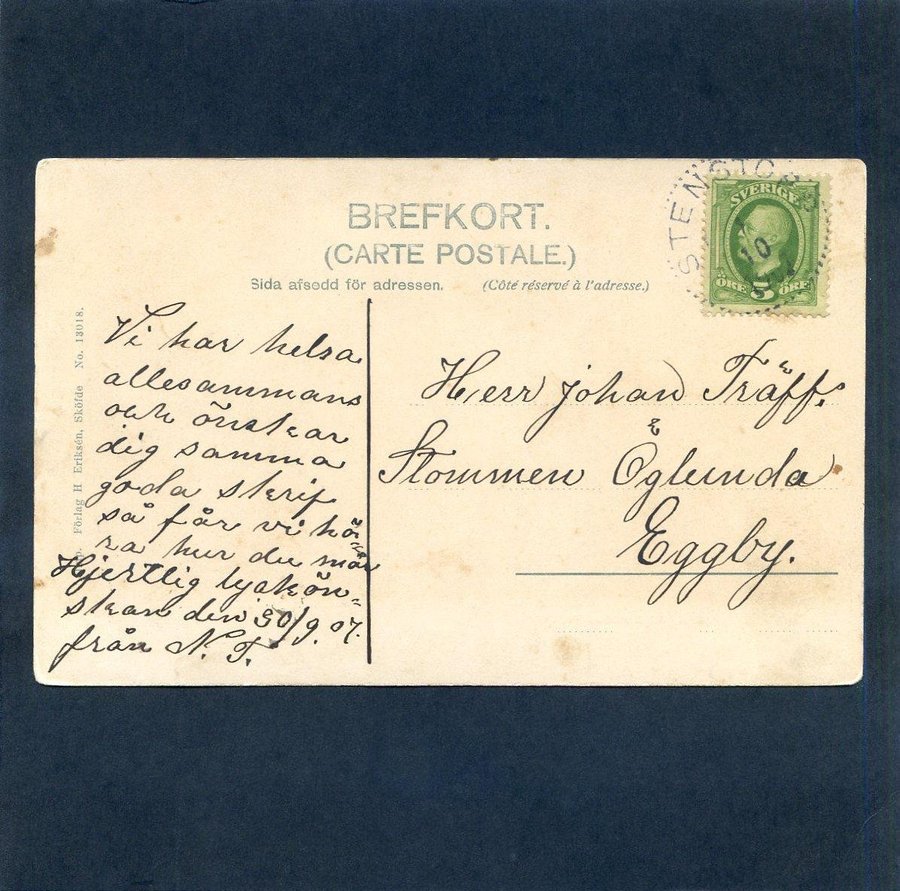 BREFKORT.
(CARTE POSTALE.)
Sida afsedd för adressen. (Côté réservé à l'adresse.)
STENSTORP
10
SVERIGE
ÖRE 5 ÖRE
Förlag H Eriksén, Sköfde No. 13018.
Vi har helsa
allesammans
och önskar
dig samma
goda skrif
så får vi hö-
ra hur du mår
Hjertlig lyckön-
skan den 30/9. 07.
från N. T.
Herr Johan Träff.
Stommen Öglunda
Eggby.